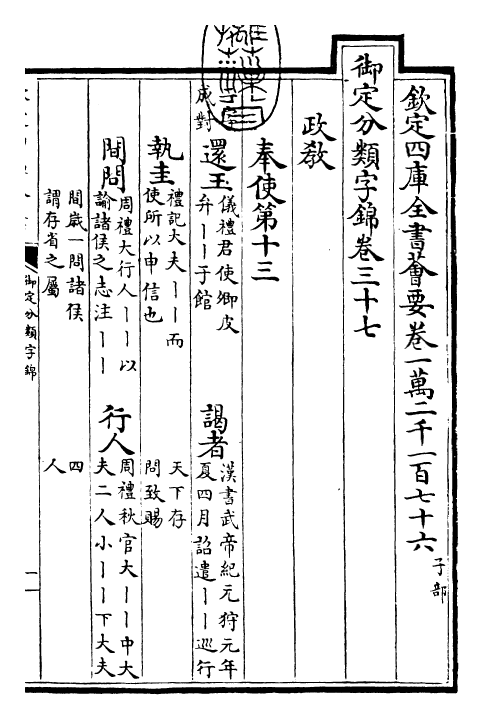 欽定四庫全書薈要卷一萬二千一百七十六 子部
御定分類字錦卷三十七
政教
奉使第十三
成對
還玉 儀禮君使卿皮弁丨丨于館
謁者 漢書武帝紀元狩元年夏四月詔遣丨丨巡行天下存問致賜
執圭 禮記大夫丨丨而使所以申信也
間問 周禮大行人丨丨以諭諸侯之志注丨丨間歲一問諸侯謂存省之屬
行人 周禮秋官大丨丨中大夫二人小丨丨下大夫四人
御定分類字錦
一